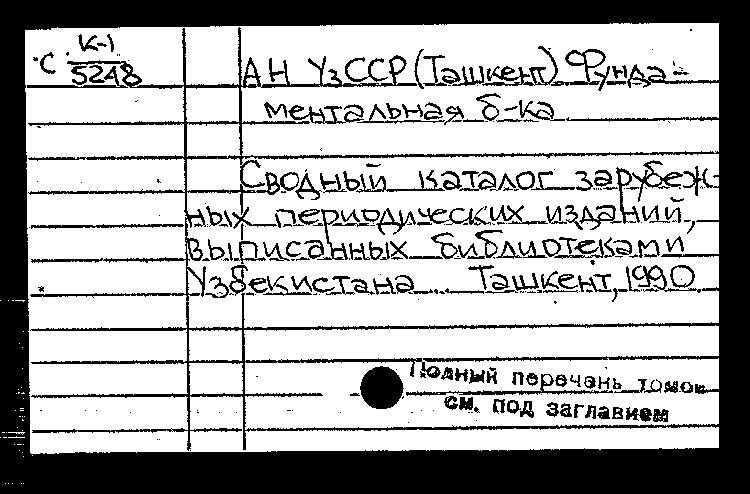 С К-1
5248
АН УзССР (Ташкент) Фунда-
ментальная б-ка
Сводный каталог зарубеж-
ных периодических изданий,
выписанных библиотеками
Узбекистана ... Ташкент, 1990
Полный перечень томов
см. под заглавием